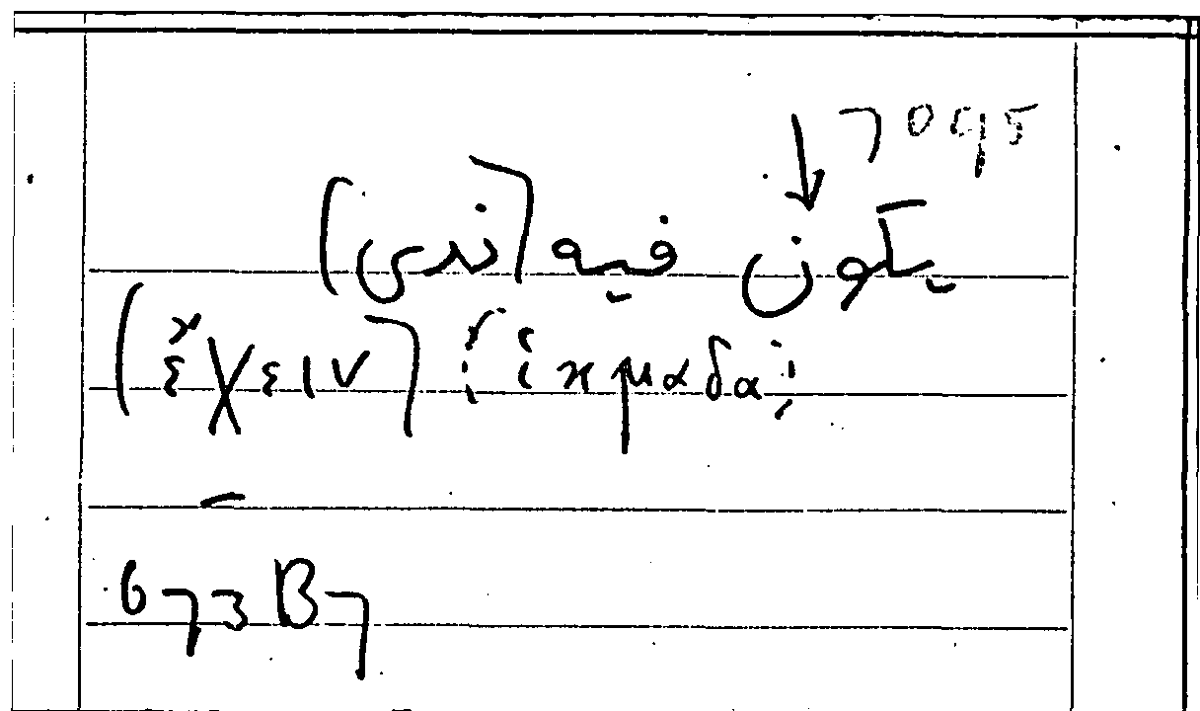 ↓ 7095
يكون فيه (ندى)
(ἔχειν) ἰκμαδα
673B7